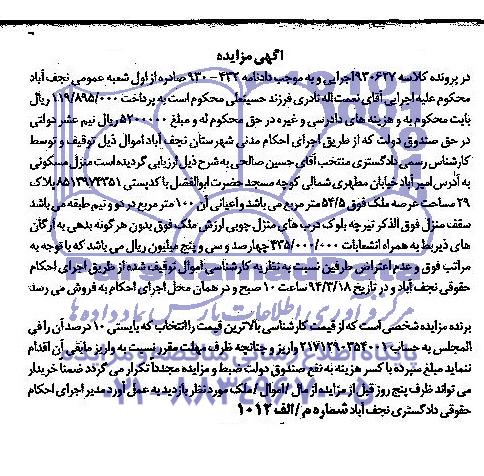 آگهی مزایده
در پرونده کلاسه ۹۳۰۶۲۷ اجرایی و به موجب دادنامه ۴۳۲ - ۹۳۰ صادره از اول شعبه عمومی نجف آباد
محکوم علیه اجرایی آقای نعمت اله نادری فرزند حسینعلی محکوم است به پرداخت ۱۱۹/۸۹۵/۰۰۰ ریال
بابت محکوم به و هزینه های دادرسی و غیره در حق محکوم له و مبلغ ۵۲۰۰۰۰۰ ریال نیم عشر دولتی
در حق صندوق دولت که از طریق اجرای احکام مدنی شهرستان نجف آباد اموال ذیل توقیف و توسط
کارشناس رسمی دادگستری منتخب آقای حسین صالحی به شرح ذیل ارزیابی گردیده است منزل مسکونی
به آدرس امیر آباد خیابان مطهری شمالی کوچه مسجد حضرت ابوالفضل با کدپستی ۸۵۱۳۹۷۴۳۵۱ پلاک
۲۹ مساحت عرصه ملک فوق ۵۴/۵ متر مربع می باشد و اعیانی آن ۱۰۰ متر مربع در دو و نیم طبقه می باشد
سقف منزل فوق الذکر تیرچه بلوک درب های منزل چوبی ارزش ملک فوق بدون هر گونه بدهی به ارگان
های ذیربط به همراه انشعابات ۴۳۵/۰۰۰/۰۰۰ چهارصد و سی و پنج میلیون ریال می باشد که با توجه به
مراتب فوق و عدم اعتراض طرفین نسبت به نظریه کارشناسی اموال توقیف شده از طریق اجرای احکام
حقوقی نجف آباد و در تاریخ ۹۴/۳/۱۸ ساعت ۱۰ صبح و در همان محل اجرای احکام به فروش می رسد
مرکز فرآوری اطلاعات پارس نماد داده ها
برنده مزایده شخصی است که از قیمت کارشناسی بالاترین قیمت را انتخاب که بایستی ۱۰ درصد آن را فی
المجلس به حساب ۲۱۷۱۲۹۰۳۵۴۰۰۱ واریز و چنانچه ظرف مهلت مقرر نسبت به واریز مابقی آن اقدام
ننماید مبلغ سپرده با کسر هزینه به نفع صندوق دولت ضبط و مزایده مجددا تکرار می گردد ضمنا خریدار
می تواند ظرف پنج روز قبل از مزایده از مال / اموال / ملک مورد نظر بازدید به عمل آورد مدیر اجرای احکام
حقوقی دادگستری نجف آباد شماره م / الف ۱۰۱۲